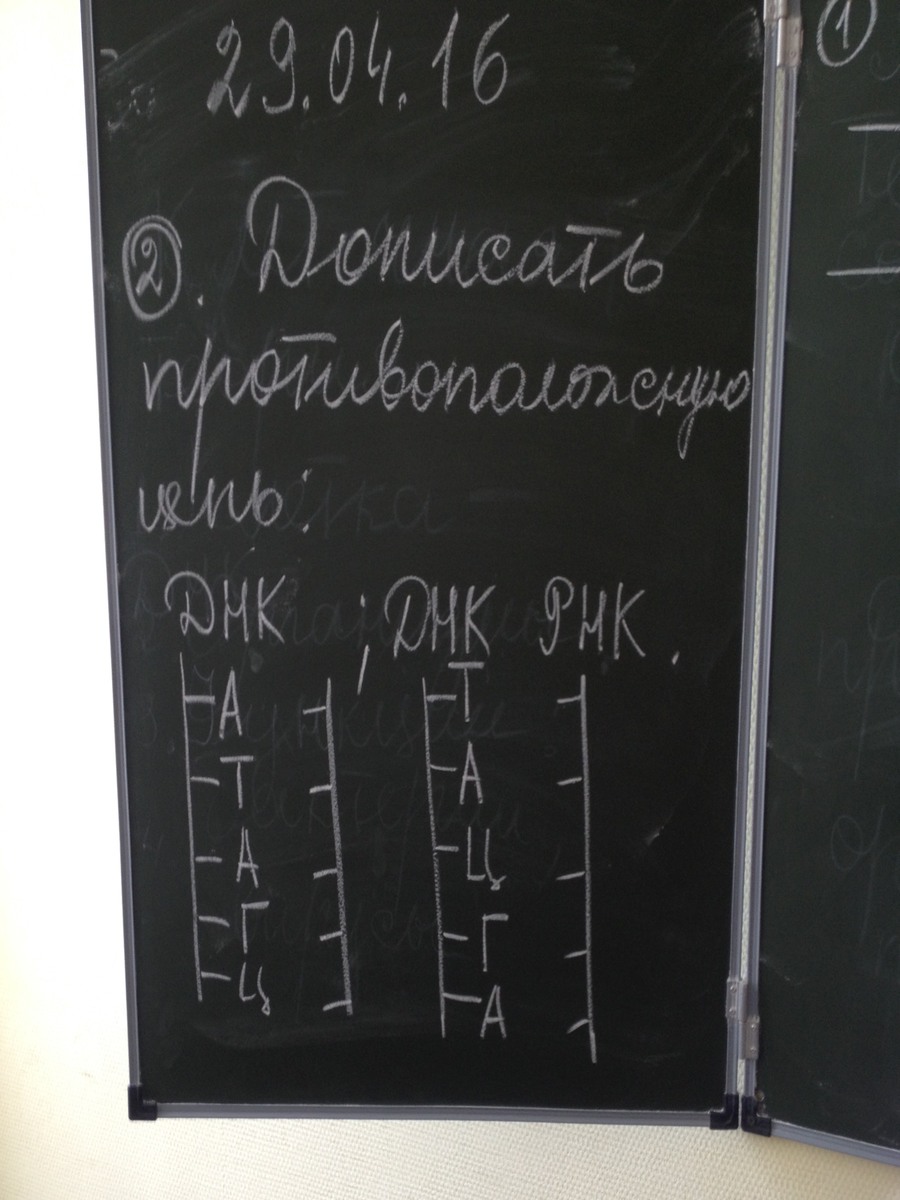 29.04.16
2. Дописать
противоположную
цепь:
ДНК ; ДНК РНК.
А Т
Т А
А Ц
Г Г
Ц А
1